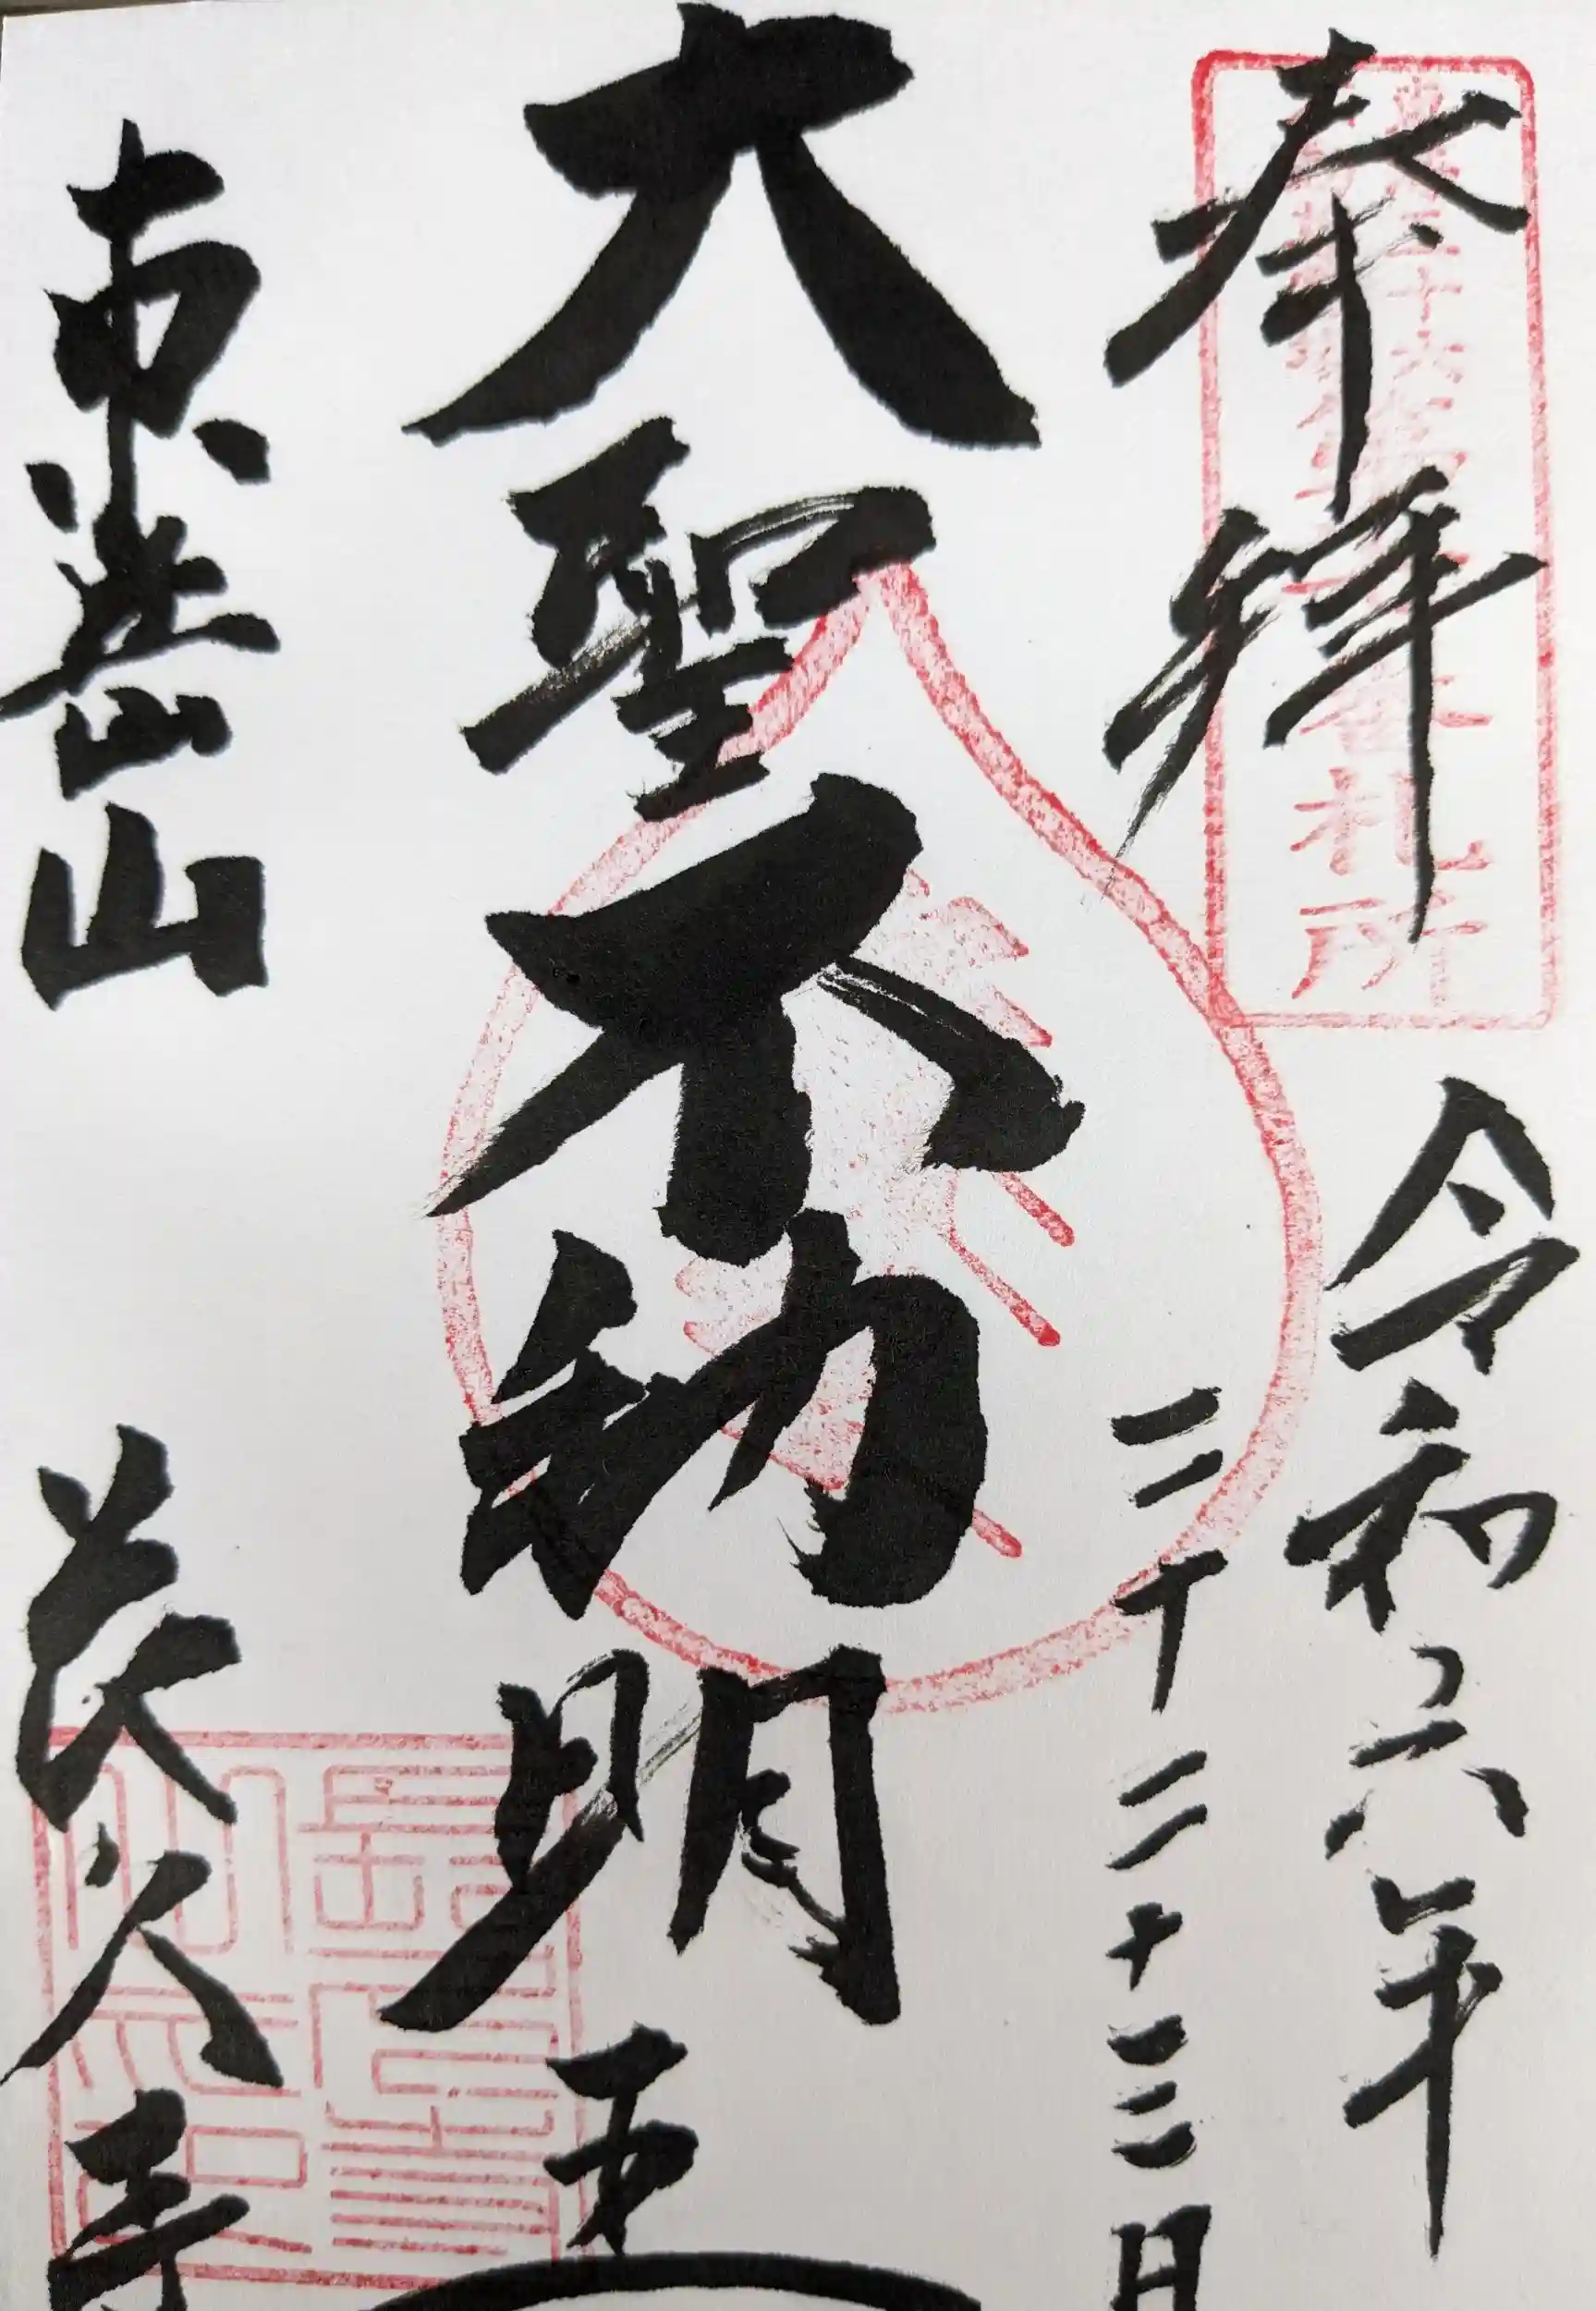 奉拝
令和六年
二十三日
大聖不動明王
東岳山
長久寺
札所